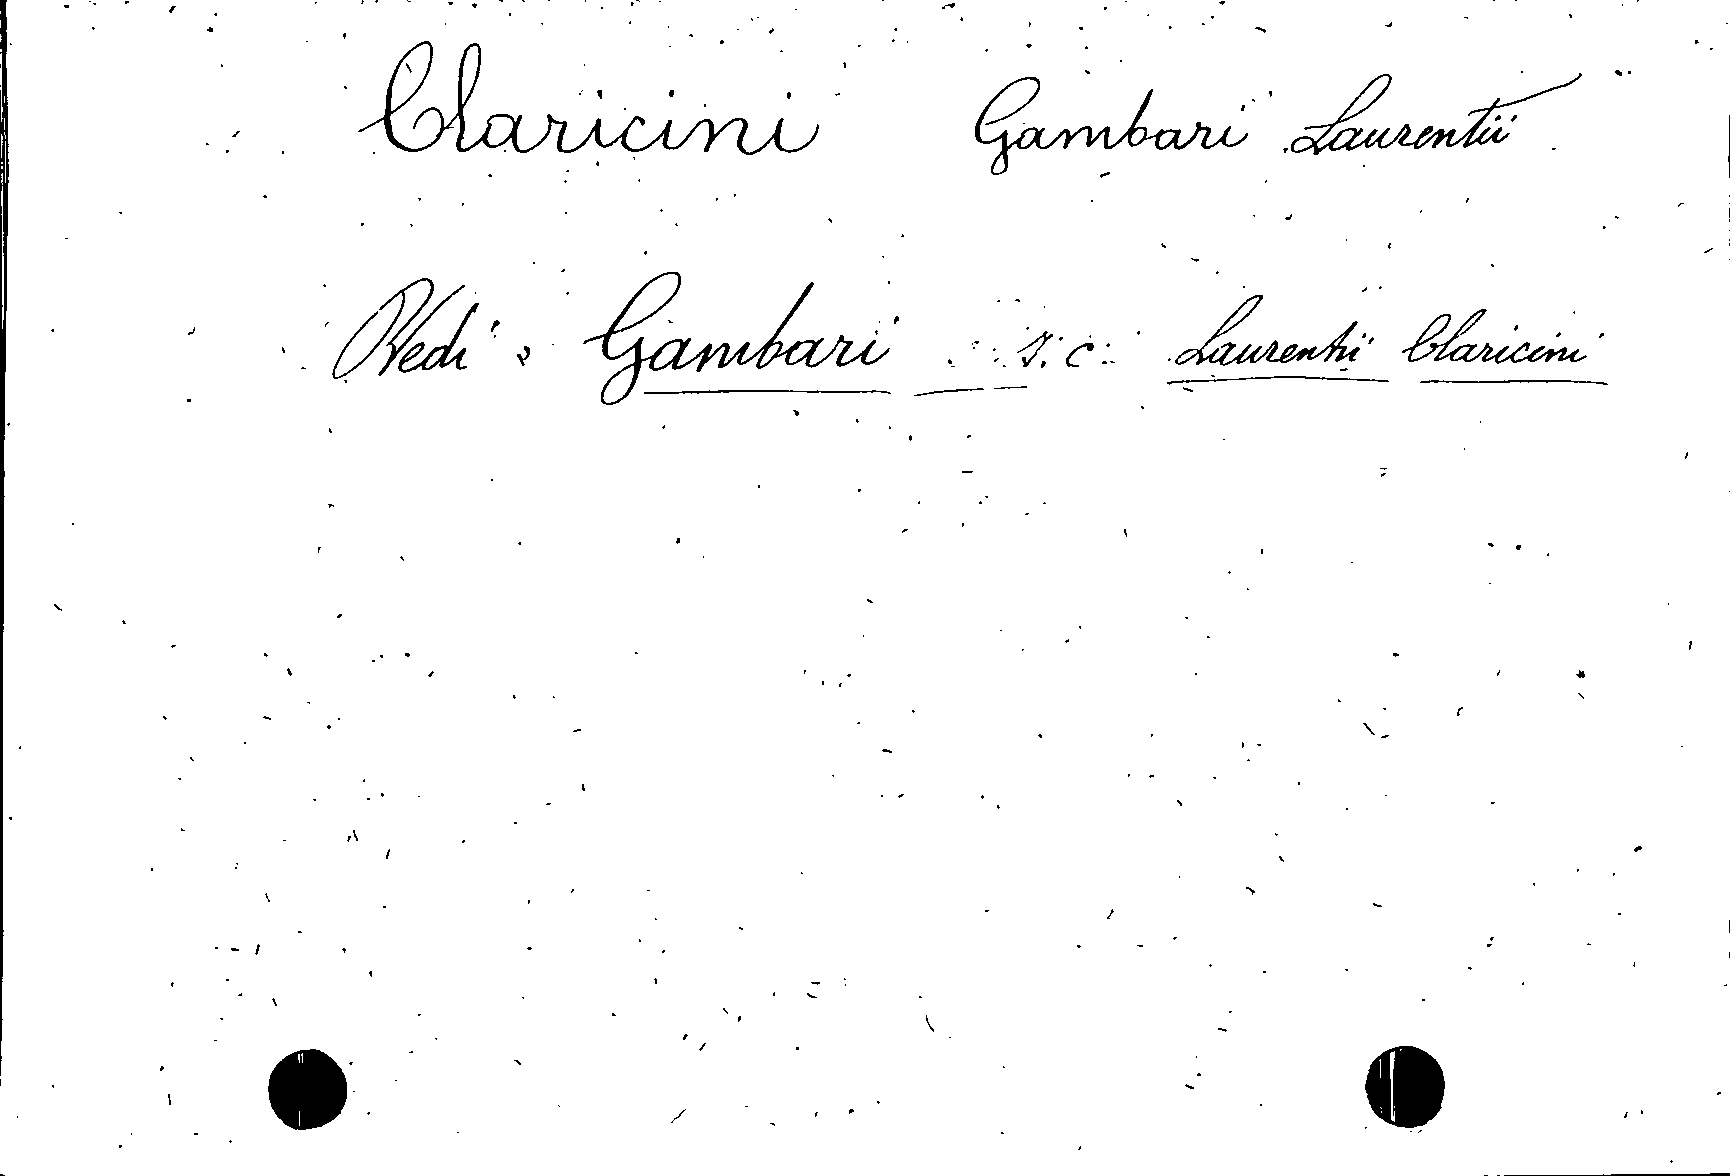 Claricini Gambari Laurentii
Vedi: Gambari J. C. Laurentii Claricini